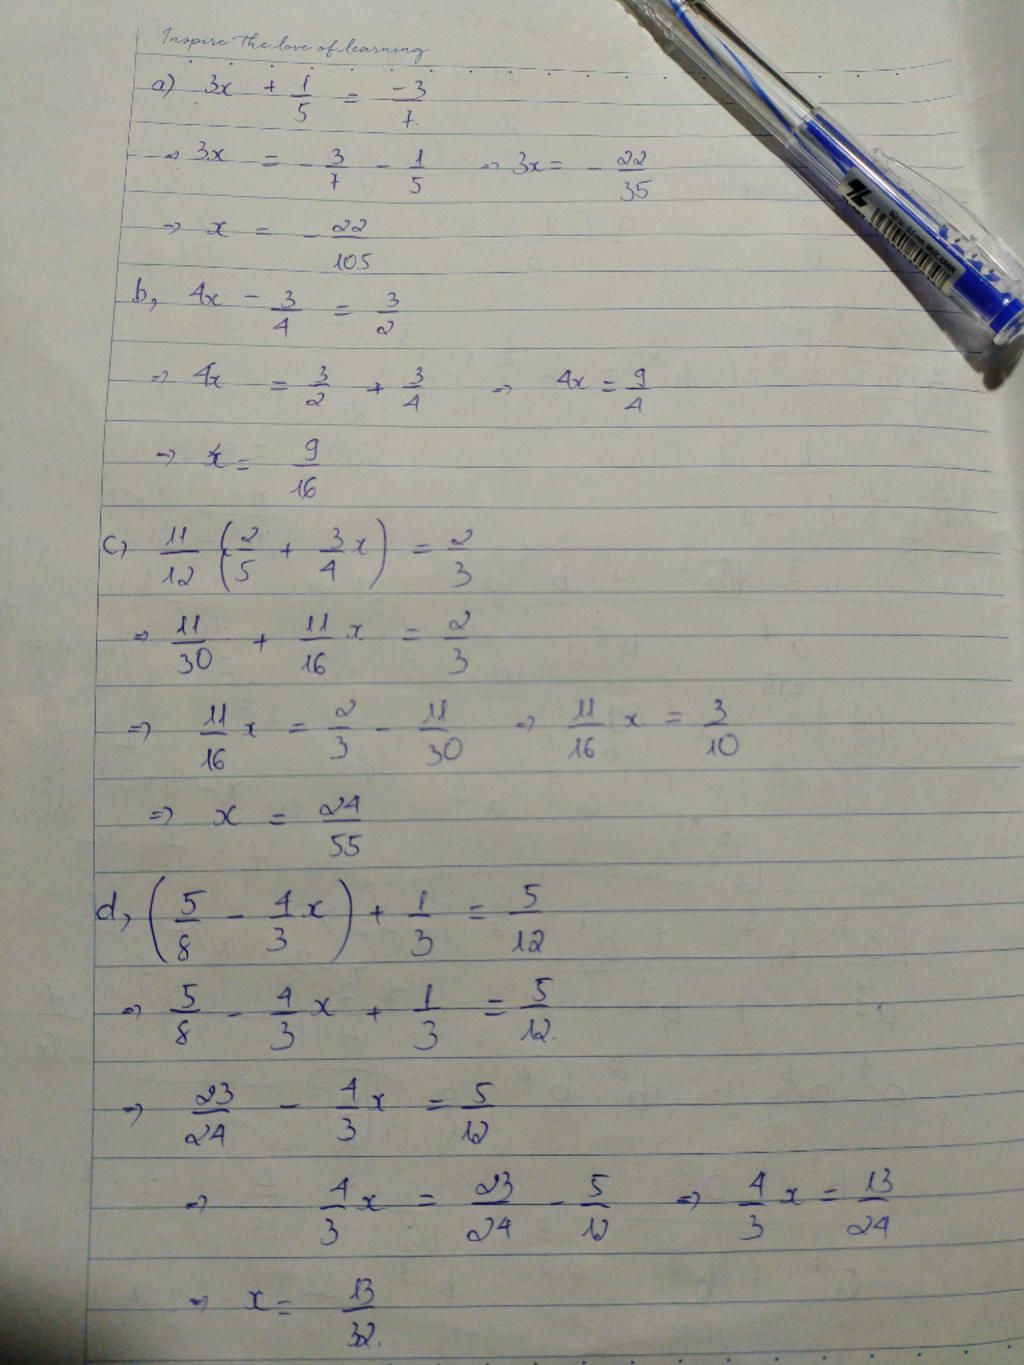 Inspire The love of learning
a) 3x + 1/5 = -3/7.
=> 3x = - 3/7 - 1/5 => 3x = - 22/35
=> x = - 22/105
b, 4x - 3/4 = 3/2
=> 4x = 3/2 + 3/4 => 4x = 9/4
=> x = 9/16
c) 11/12 (2/5 + 3/4 x) = 2/3
=> 11/30 + 11/16 x = 2/3
=> 11/16 x = 2/3 - 11/30 => 11/16 x = 3/10
=> x = 24/55
d, (5/8 - 4/3 x) + 1/3 = 5/12
=> 5/8 - 4/3 x + 1/3 = 5/12.
=> 23/24 - 4/3 x = 5/12
=> 4/3 x = 23/24 - 5/12 => 4/3 x = 13/24
=> x = 13/32.